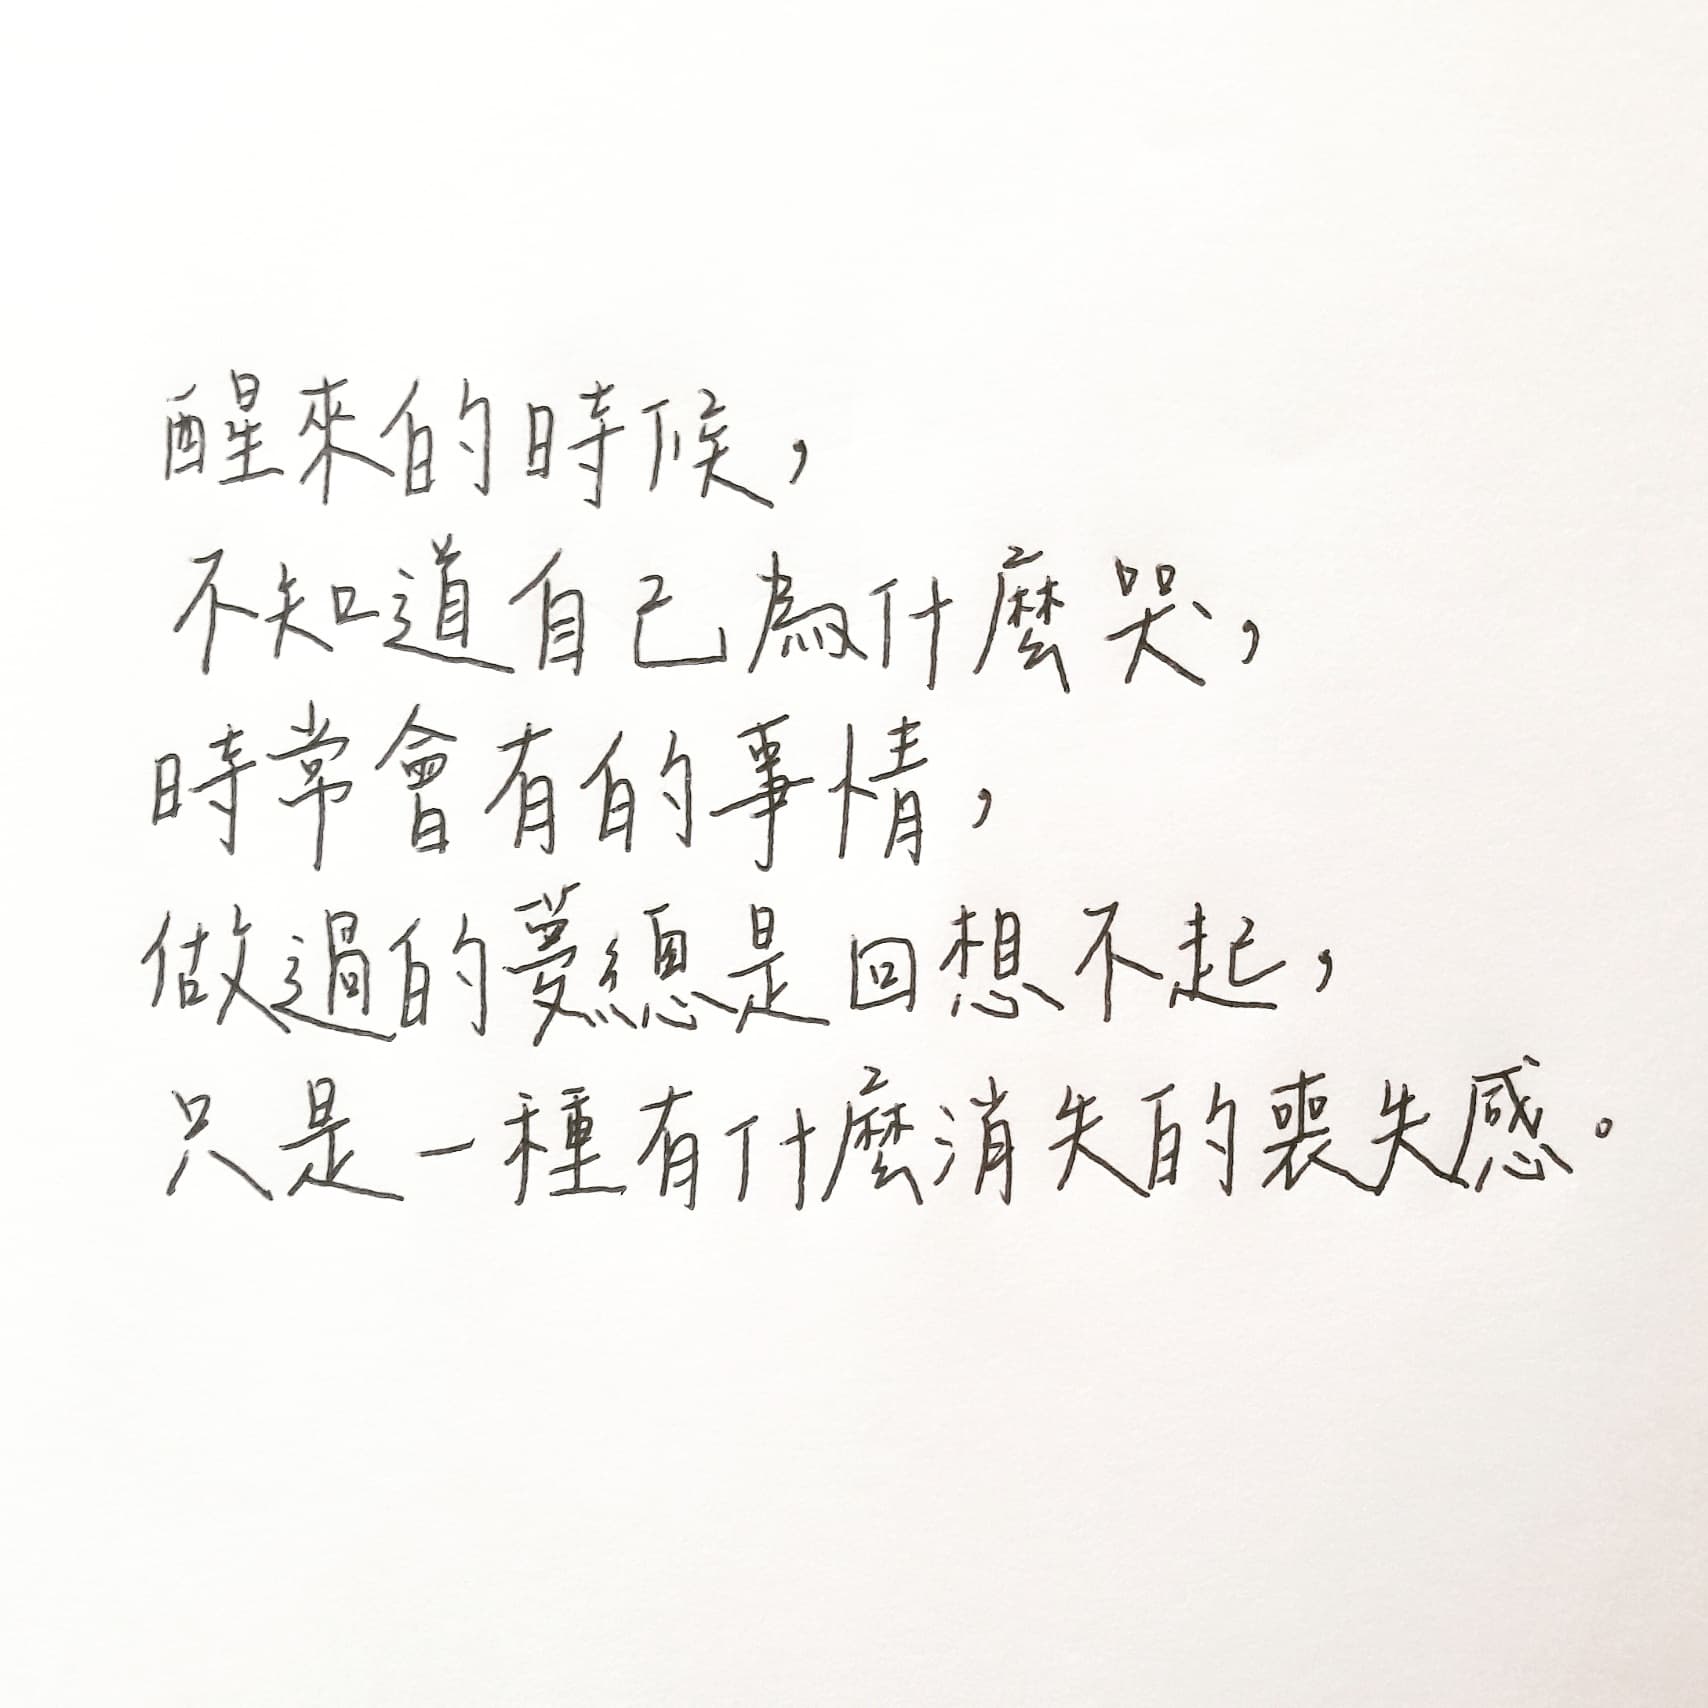 醒來的時候，
不知道自己為什麼哭，
時常會有的事情，
做過的夢總是回想不起，
只是一種有什麼消失的喪失感。